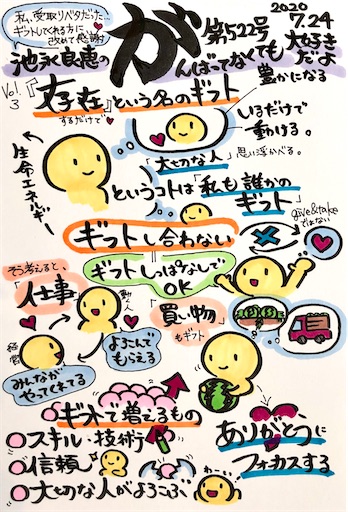 私、受取りベタだった…
ギフトしてくれる方に
改めて感謝
2020
7.24
第522号
池永良恵の
がんばってなくても大好き
だよ
Vol.
3
『存在』という名のギフト
するだけで
豊かになる
いるだけで
動ける。
生命エネルギー
「大切な人」思い浮かべる。
というコトは「私も誰かの
ギフト」
ギフトし合わない
give&take
ではない
ギフトしっぱなしで
OK
そう考えると、
「仕事」
動く人
経営
よろこんで
もらえる
みんなが
やってくれてる
「買い物」
もギフト
ギフトで増えるもの
スキル・技術
信頼
大切な人がよろこぶ
わーい
ありがとうに
フォーカスする